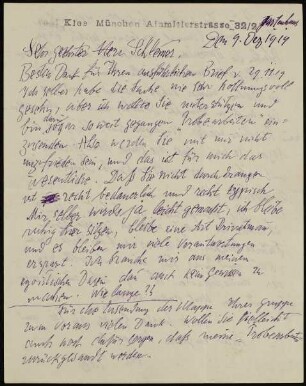 Klee München Ainmillerstrasse 32/2 Gartenhaus
Den 9. Dez 1919
Sehr geehrter Herr Schlemmer
Besten Dank für Ihren ausführlichen Brief v. 29.11.19
Ich selber habe die Sache nie sehr hoffnungsvoll
gesehn, aber ich wollte Sie unterstützen und
bin sogar so weit gegangen "Probearbeiten" ein-
zusenden Also werden Sie mit mir nicht
unzufrieden sein, und das ist für mich das
wesentliche. Daß Sie nicht durchdrangen
ist recht bedauerlich und recht typisch
Mir selber wurde ja leicht gemacht, ich bleibe
ruhig hier sitzen, bleibe eine Art Privatmann,
und es bleiben mir viele Verantwortungen
erspart. Ich brauche mir aus meinem
egoistischen Dasein dann auch kein Gewissen zu
machen. Wie lange??
Für die Zusendung des Ihrer Gruppe
zum voraus vielen Dank. Wollen Sie vielleicht
auch noch dafür sorgen, daß meine "Probearbeiten"
zurückgesandt werden.